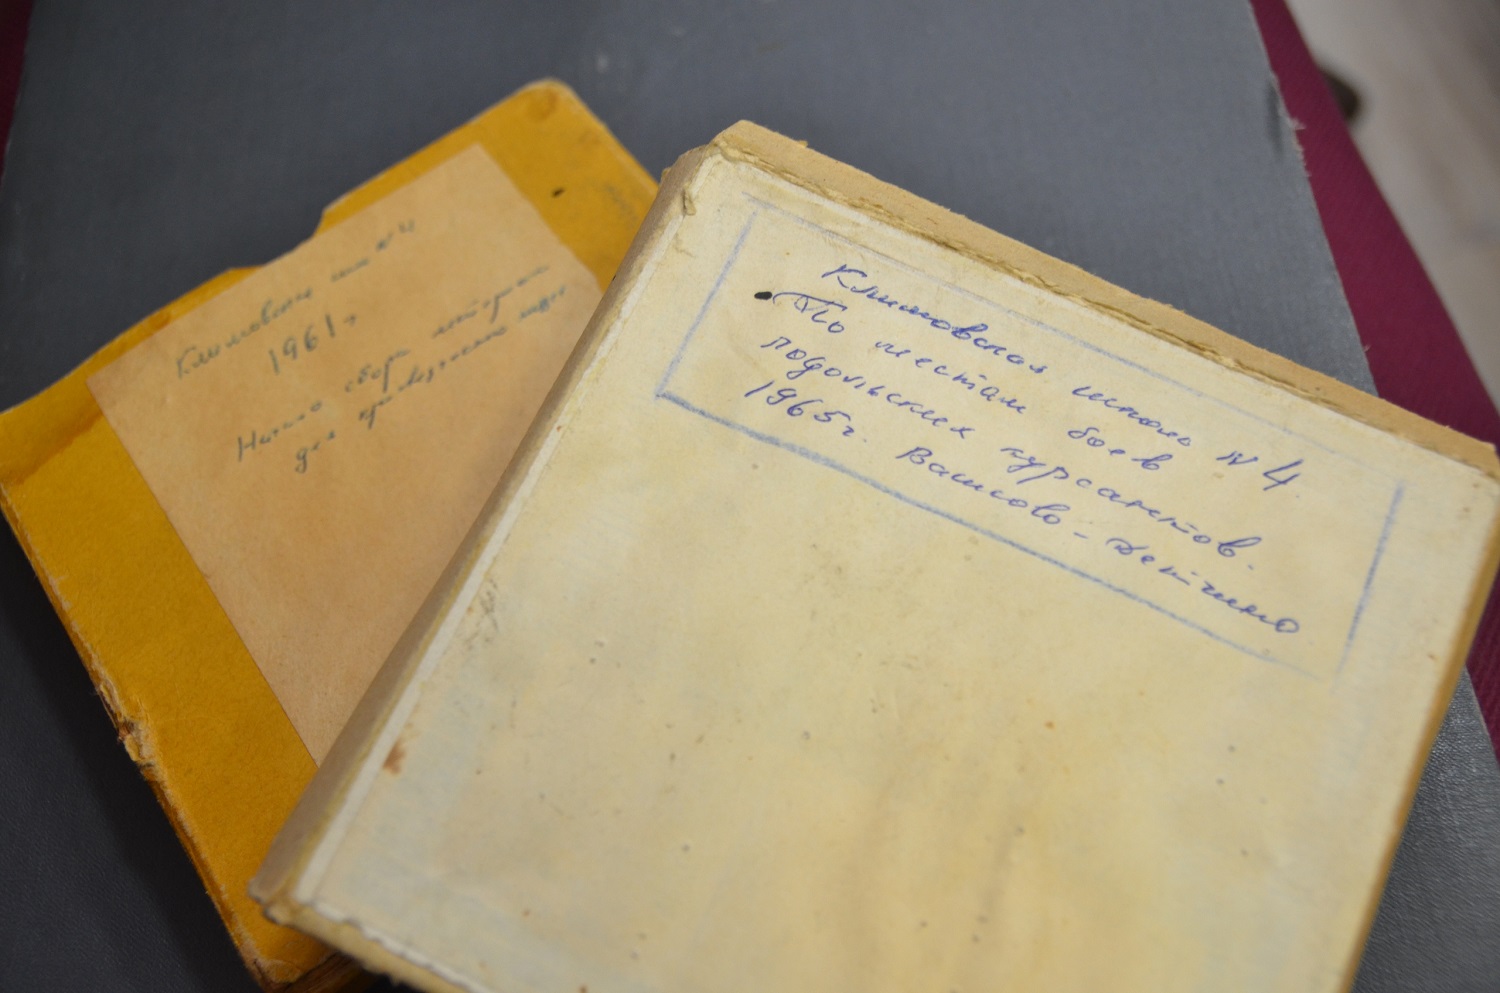 Климовская шк №4
1961 г
Начало сбора материала
для краеведческого
Климовская школа №4
По местам боев
подольских курсантов.
1965г. Вашково-Детчино